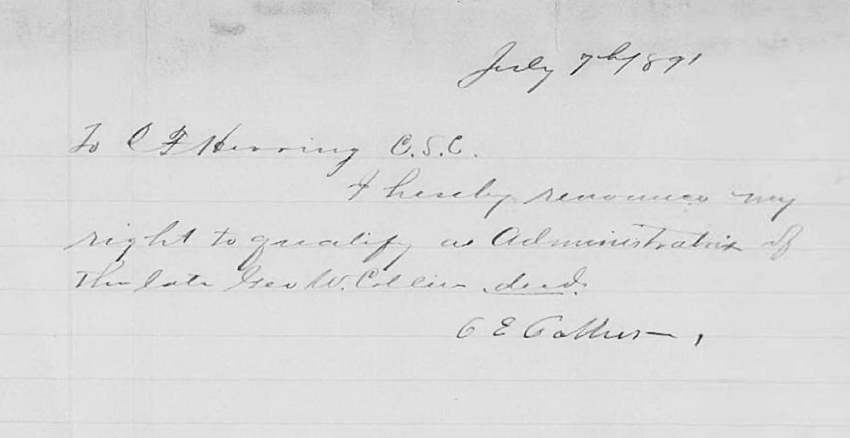 July 7th 1891
To C F Herring C.S.C.
I hereby renounce my
right to qualify as Administratrix of
the late Geo W. Collins decd.
C E